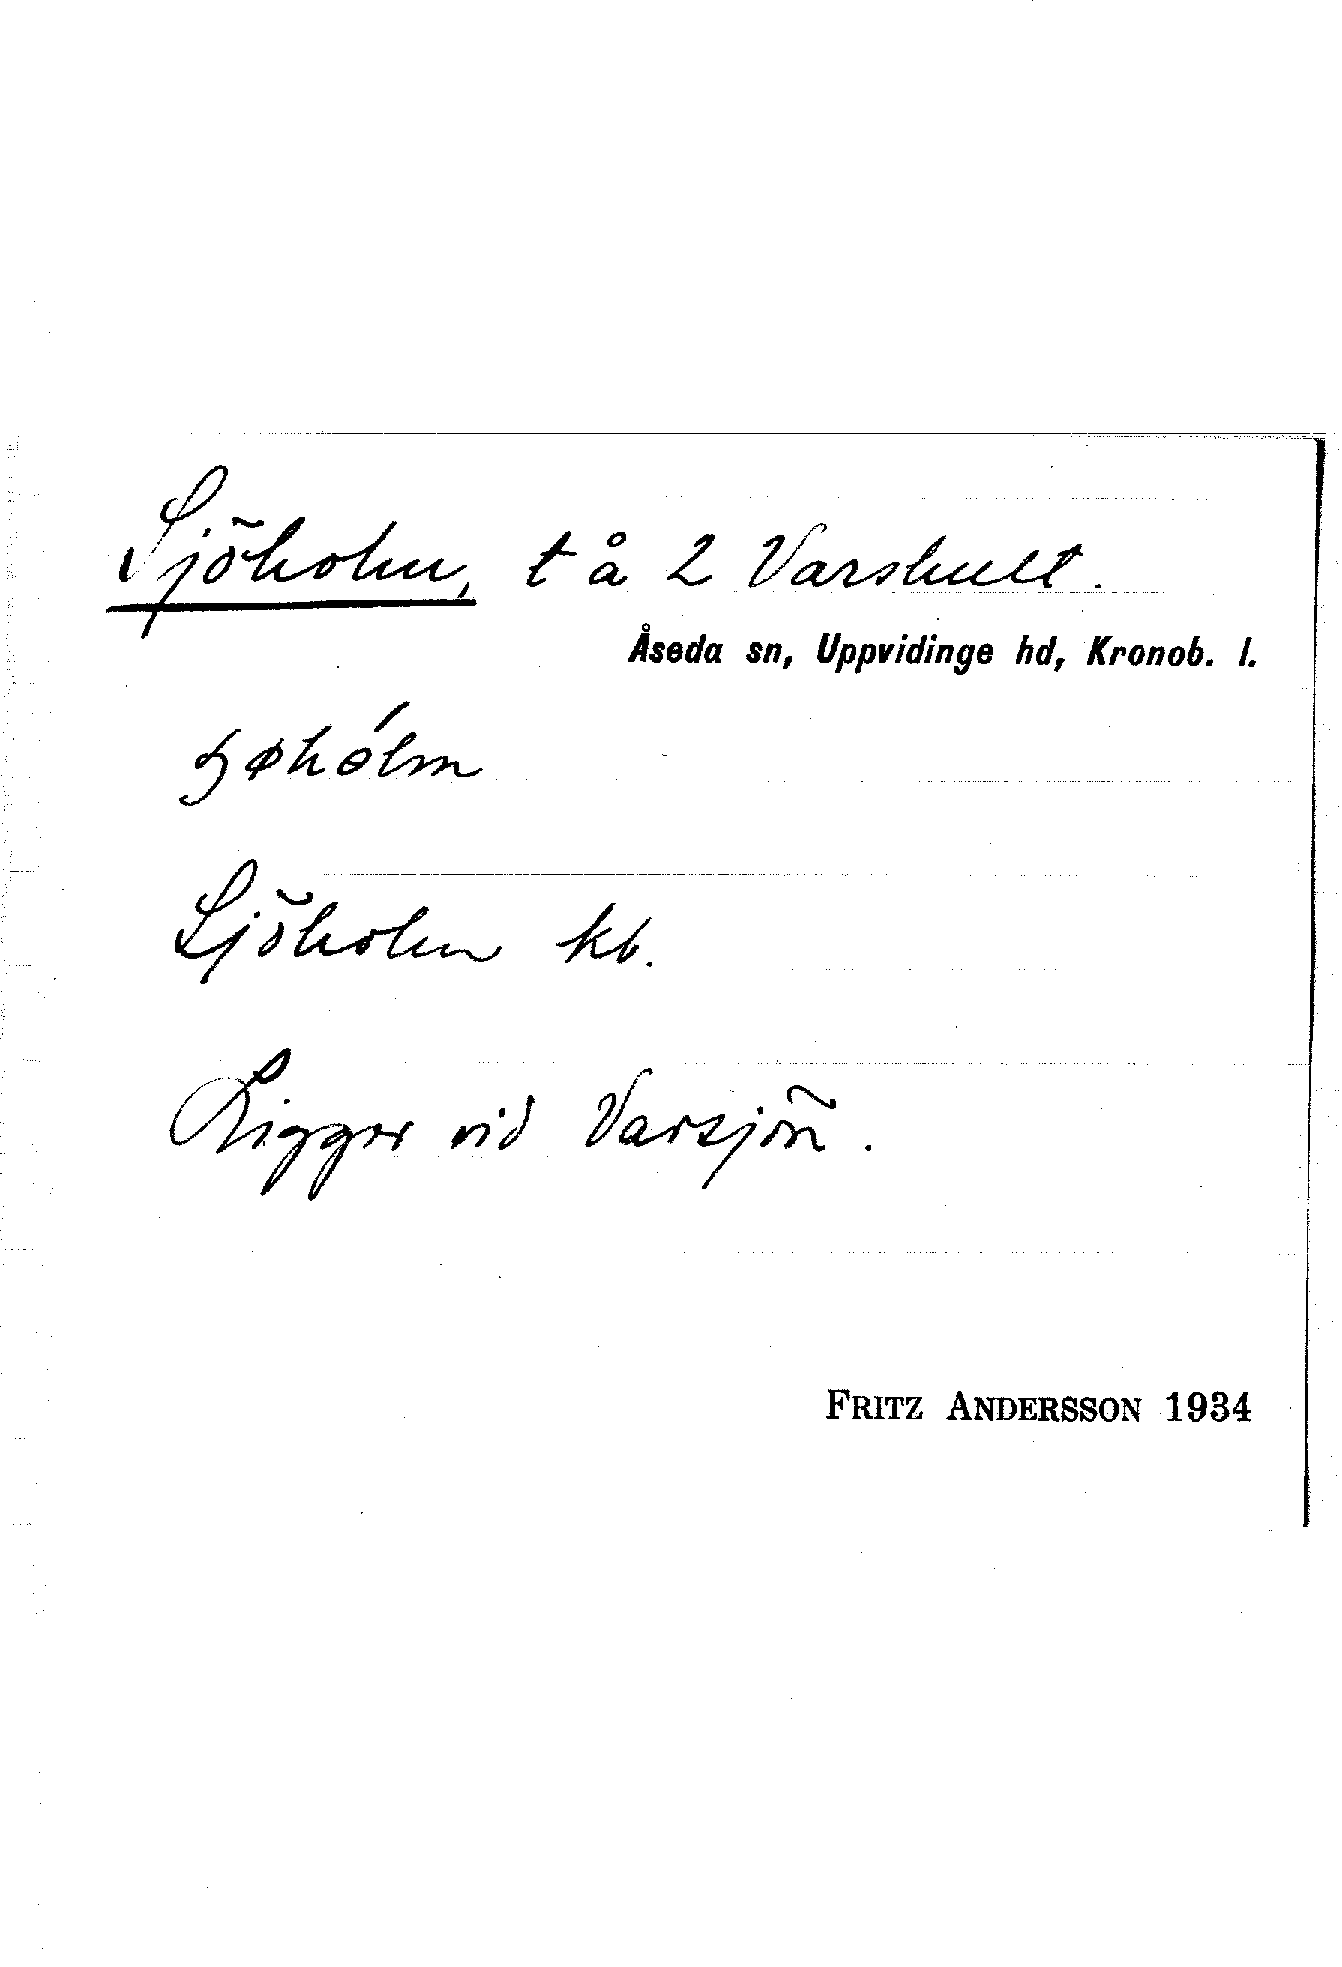 Sjöholm, t å 2 Varshult.
Åseda sn, Uppvidinge hd, Kronob. l.
Sjöholm kb.
Ligger vid Varsjön.
FRITZ ANDERSSON 1934